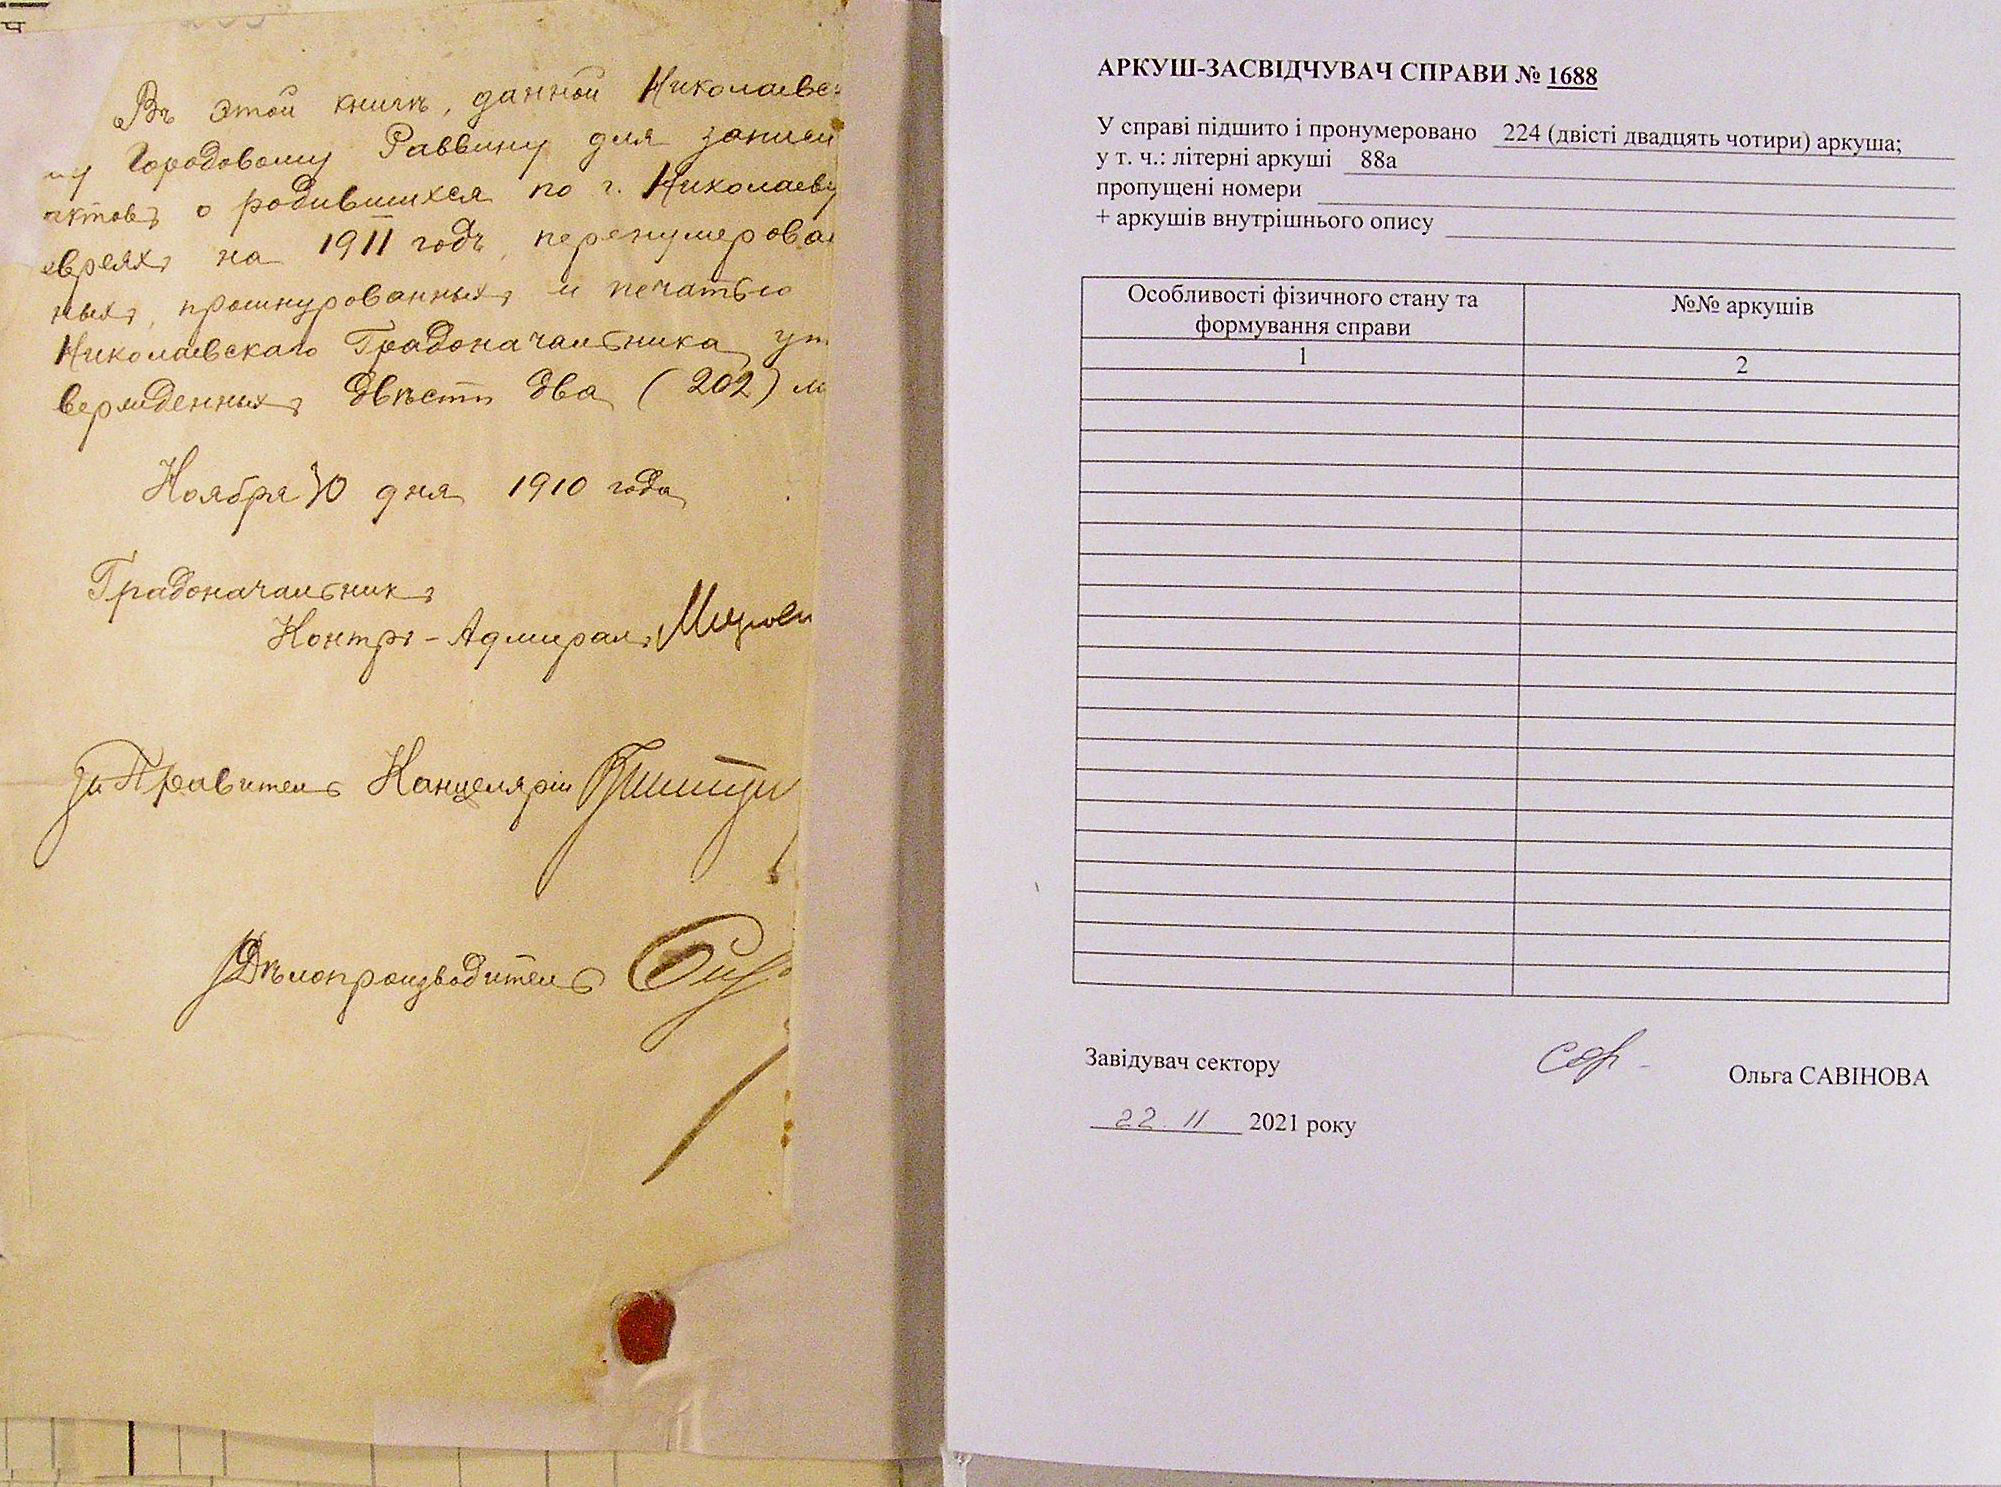 ч
Въ этой книгѣ, данной Николаевс
му Городовому Раввину для записи
актовъ о родившихся по г. Николаеву
евреяхъ на 1911 годъ, перенумерован
ныхъ, прошнурованныхъ и печатью
Николаевскаго Градоначальника ут
вержденныхъ двѣсти два (202) л
Ноября 30 дня 1910 года
Градоначальникъ
Контръ-Адмиралъ
За Правитель Канцеляріи
Дѣлопроизводитель
АРКУШ-ЗАСВІДЧУВАЧ СПРАВИ № 1688
У справі підшито і пронумеровано 224 (двісті двадцять чотири) аркуша;
у т. ч.: літерні аркуші 88а
пропущені номери
+ аркушів внутрішнього опису
Особливості фізичного стану та
формування справи
№№ аркушів
1
2
Завідувач сектору
Ольга САВІНОВА
22. 11 2021 року